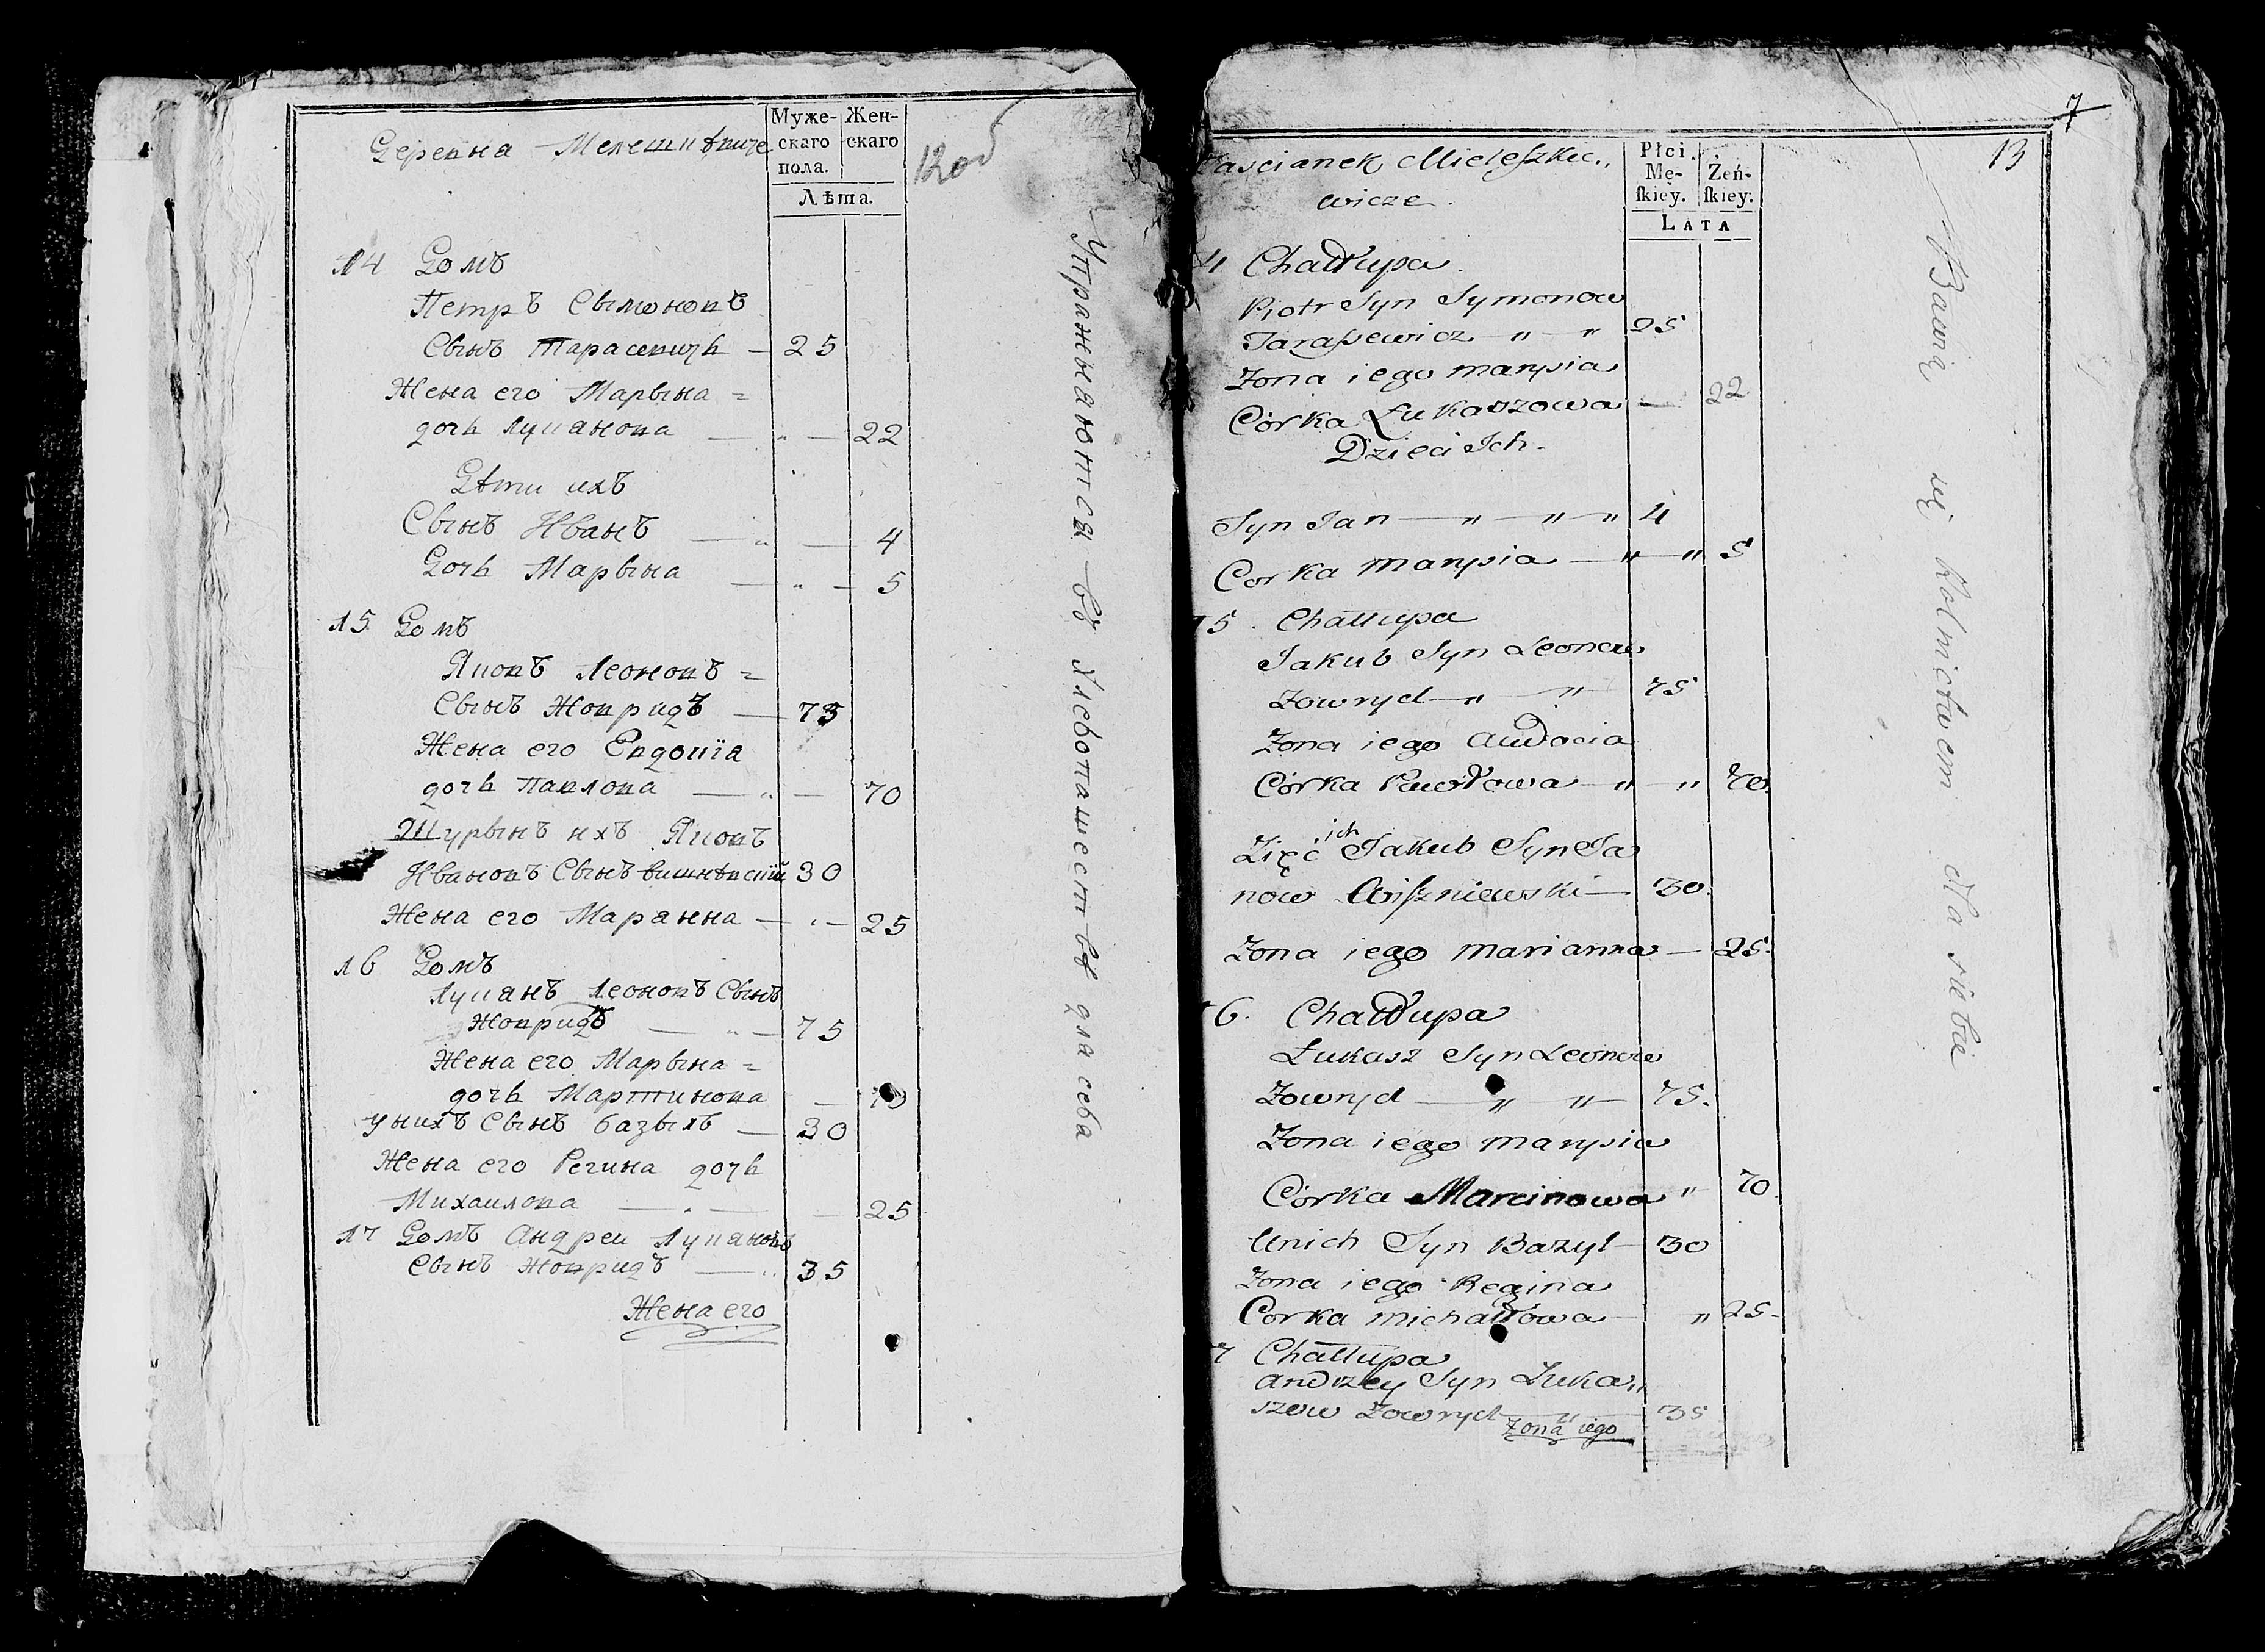 Деревна Мелешкѣвиче
Муже-
скаго
пола.
Жен-
скаго
Лѣта.
12об
14 Домъ
Петръ Сымоновъ
Сынъ Тарасевичь — 25
Жена его Марына =
дочь Луканова — „ — 22
Дѣти ихъ
Сынъ Иванъ — „ — 4
Дочь Марына — „ — 5
15 Домъ
Яковъ Леоновъ =
Сынъ Жовридъ — 75
Жена его Евдокія
дочь Павлова — „ — 70
Шурынъ ихъ Яковъ
Ивановъ Сынъ вишнѣвскій 30
Жена его Маранна — „ — 25
16 Домъ
Луканъ Леоновъ Сынъ
Жовридъ — „ — 75
Жена его Марына =
дочь Мартинова — 70
у нихъ Сынъ базыль — 30
Жена его Регина дочь
Михаилова — „ — 25
17 Домъ Андреи Лукановъ
Сынъ Жовридъ — „ 35
Жена его
Упражняются въ хлебопашестве для себа
7
13
Zascianek Mieleszkie„
wicze
Płci
Mę-
ſkiey.
Żeń-
ſkiey.
LATA
4 Chałłupa
Piotr Syn Symonow
Taraſsewicz — „ — „ 25
Żona iego Marysia
Córka Łukaszowa — 22
Dzieci Ich
Syn Jan — „ — „ — „ 4
Corka Marysia — „ — „ 5
15. Chałłupa
Jakub Syn Leonow
Żowryd — „ — „ 75
Żona iego Audocia
Córka Pawłowa — „ — „ 70.
Zięć ich Jakub Syn Ja
now Wiſzniewski — 30.
Żona iego Marianna — 25.
16. Chałłupa
Łukasz Syn Leonow
Żowryd — „ — „ — 75.
Żona iego Marysia
Córka Marcinowa „ 70.
Unich Syn Bazyl — 30
Żona iego Regina
Corka Michałłowa — „ 25.
7 Chałłupa
Andrzey Syn Łuka„
szow Żowryd — „ — 35
Żona iego
Bawią się Rolnictwem dla siebie